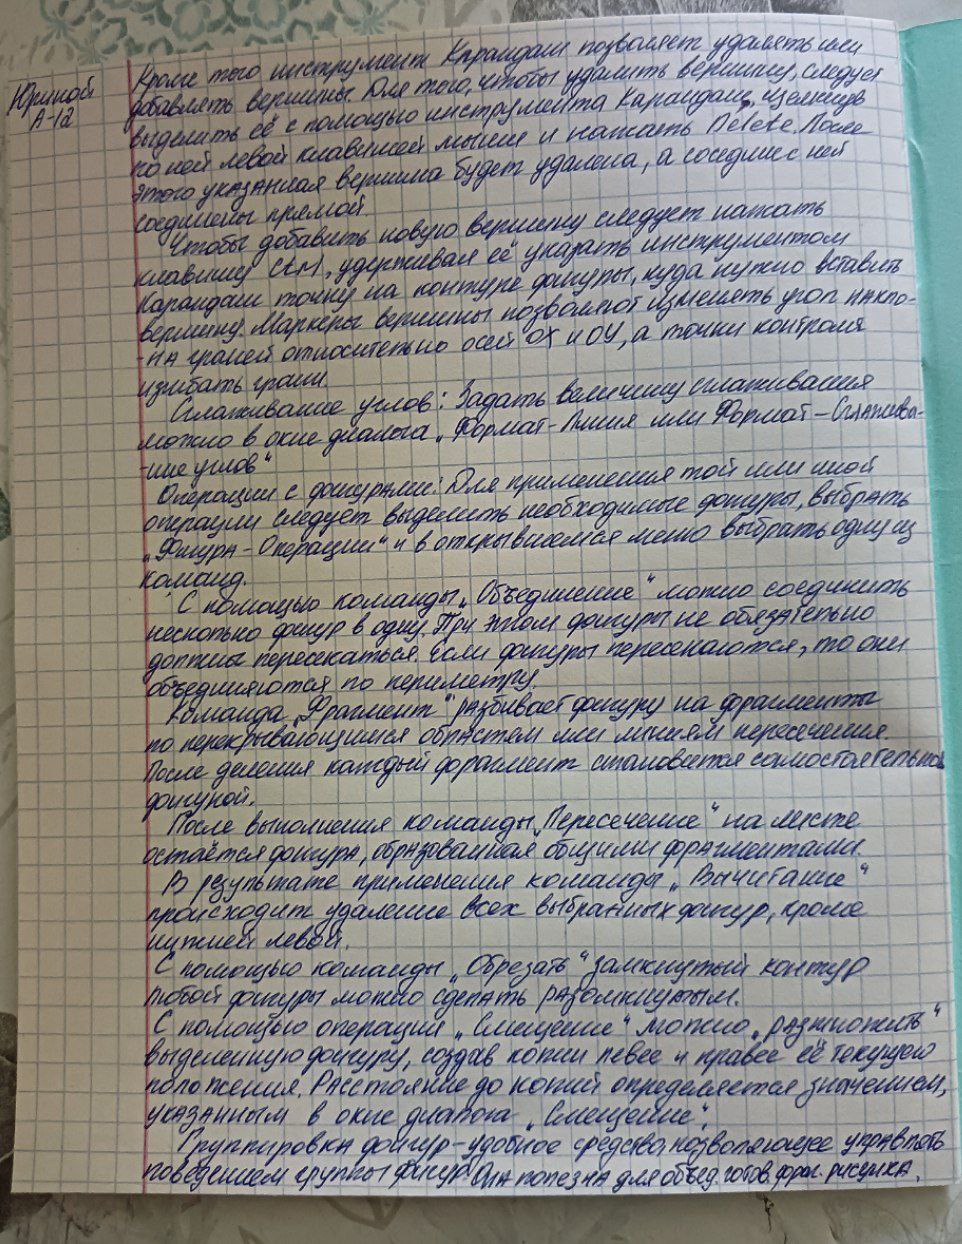 Юриной
А-12
Кроме того инструмент Карандаш позволяет удалять или
добавлять вершины. Для того, чтобы удалить вершину, следует
выделить её с помощью инструмента Карандаш, щелкнув
по ней левой клавишей мыши и нажать Delete. После
этого указанная вершина будет удалена, а соседние с ней
соединены прямой.
Чтобы добавить новую вершину следует нажать
клавишу Ctrl, удерживая её указать инструментом
Карандаш точку на контуре фигуры, куда нужно вставить
вершину. Маркеры вершины позволяют изменять угол накло-
-на граней относительно осей ОХ и ОУ, а точки контроля
изгибать грани.
Сглаживание углов: Задать величину сглаживания
можно в окне диалога „Формат-Линия или Формат-Сглажива-
-ние углов“
Операции с фигурами: Для применения той или иной
операции следует выделить необходимые фигуры, выбрать
„Фигура-Операции“ и в открывшемся меню выбрать одну из
команд.
С помощью команды „Объединение“ можно соединить
несколько фигур в одну. При этом фигуры не обязательно
должны пересекаться. Если фигуры пересекаются, то они
объединяются по периметру.
Команда „Фрагмент“ разбивает фигуру на фрагменты
по перекрывающимся областям или линиям пересечения.
После деления каждый фрагмент становится самостоятельной
фигурой.
После выполнения команды „Пересечение“ на месте
остаётся фигура, образованная общими фрагментами.
В результате применения команды „Вычитание“
происходит удаление всех выбранных фигур, кроме
нижней левой.
С помощью команды „Обрезать“ замкнутый контур
любой фигуры можно сделать разомкнутым.
С помощью операции „Смещение“ можно „размножить“
выделенную фигуру, создав копии левее и правее её текущего
положения. Расстояние до копий определяется значением,
указанным в окне диалога „Смещение“.
Группировка фигур-удобное средство, позволяющее управлять
поведением группы фигур. Она полезна для объед. готов. фраг. рисунка.